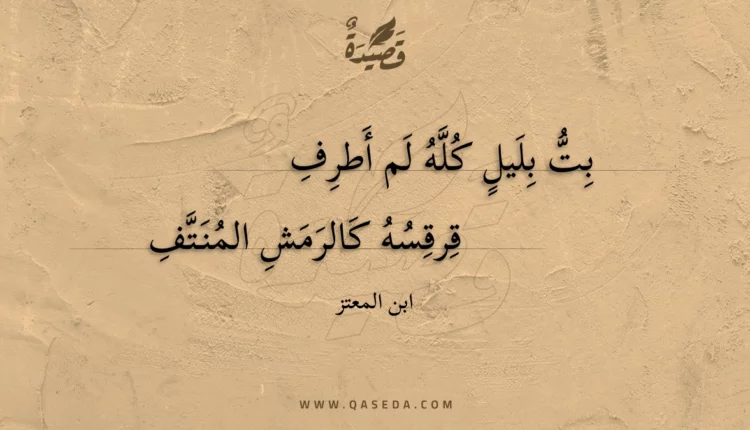 قَصِيدَةٌ
بِتُّ بِلَيلٍ كُلَّهُ لَم أَطرِفِ
قِرقِسُهُ كَالرَمَشِ المُنَتَّفِ
ابن المعتز
WWW.QASEDA.COM